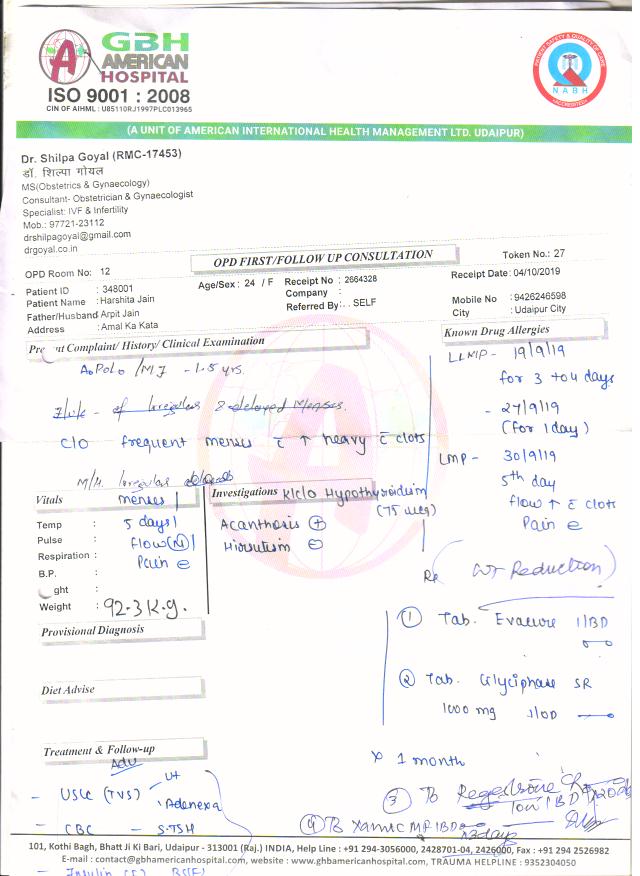 GBH
AMERICAN
HOSPITAL
ISO 9001 : 2008
CIN OF AIHML : U85110RJ1997PLC013965
PATIENT SAFETY & QUALITY OF CARE
NABH
ACCREDITED
(A UNIT OF AMERICAN INTERNATIONAL HEALTH MANAGEMENT LTD. UDAIPUR)
Dr. Shilpa Goyal (RMC-17453)
डॉ. शिल्पा गोयल
MS(Obstetrics & Gynaecology)
Consultant- Obstetrician & Gynaecologist
Specialist: IVF & Infertility
Mob.: 97721-23112
drshilpagoyal@gmail.com
drgoyal.co.in
OPD FIRST/FOLLOW UP CONSULTATION
Token No.: 27
OPD Room No: 12
Patient ID : 348001
Age/Sex : 24 / F
Receipt No : 2664328
Receipt Date : 04/10/2019
Patient Name : Harshita Jain
Company :
Father/Husband Arpit Jain
Referred By: . . SELF
Mobile No : 9426246598
Address : Amal Ka Kata
City : Udaipur City
Present Complaint/ History/ Clinical Examination
Known Drug Allergies
A0P0L0 /MF - 1.5 yrs.
of Irregular & delayed Menses.
C/O frequent menses c̄ ↑ heavy c̄ clots
LLMP - 19/9/19
for 3 to 4 days
- 27/9/19
(for 1 day)
LMP - 30/9/19
5th day
flow ↑ c̄ clots
Pain ⊖
M/H. Irregular
menses
5 days
flow (N)
Pain ⊖
Vitals
Temp :
Pulse :
Respiration :
B.P. :
ght :
Weight : 92.3 K.g.
Investigations
K/c/o Hypothyroidism
(75 mcg)
Acanthosis ⊕
Hirsutism ⊖
Rx
(WT Reduction)
① Tab. Evacure 1/BD
② Tab. Glyciphase SR
1000 mg 1/OD
x 1 month
③ Tb Regestrone CR
④ Tb Xamic MF 1BD
x3days
Provisional Diagnosis
Diet Advise
Treatment & Follow-up
Adv
- USG (TVS)
Ut
Adenexa
- CBC - S.TSH
- Insulin (F) BS(F)
101, Kothi Bagh, Bhatt Ji Ki Bari, Udaipur - 313001 (Raj.) INDIA, Help Line : +91 294-3056000, 2428701-04, 2426000, Fax : +91 294 2526982
E-mail : contact@gbhamericanhospital.com, website : www.gbhamericanhospital.com, TRAUMA HELPLINE : 9352304050